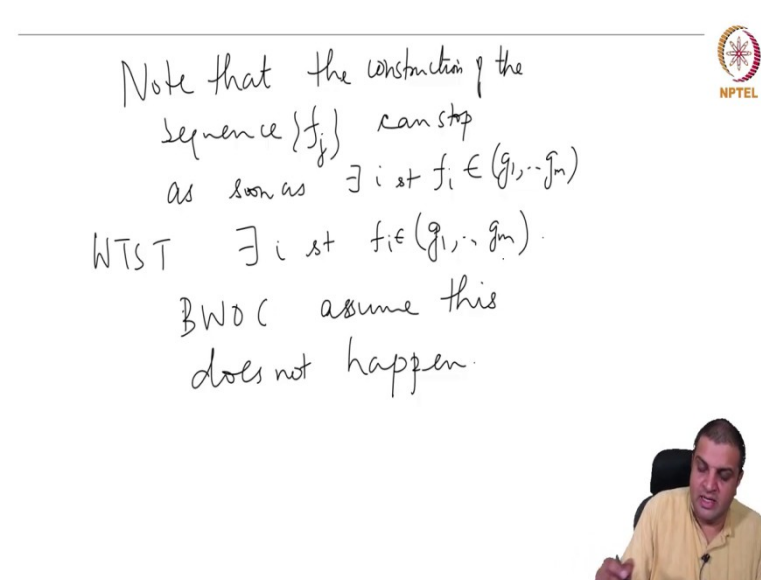 Note that the construction of the
NPTEL
sequence {f_j} can stop
as soon as ∃ i st f_i ∈ (g_1,..g_m)
WTST ∃ i st f_i ∈ (g_1,.., g_m).
BWOC assume this
does not happen.